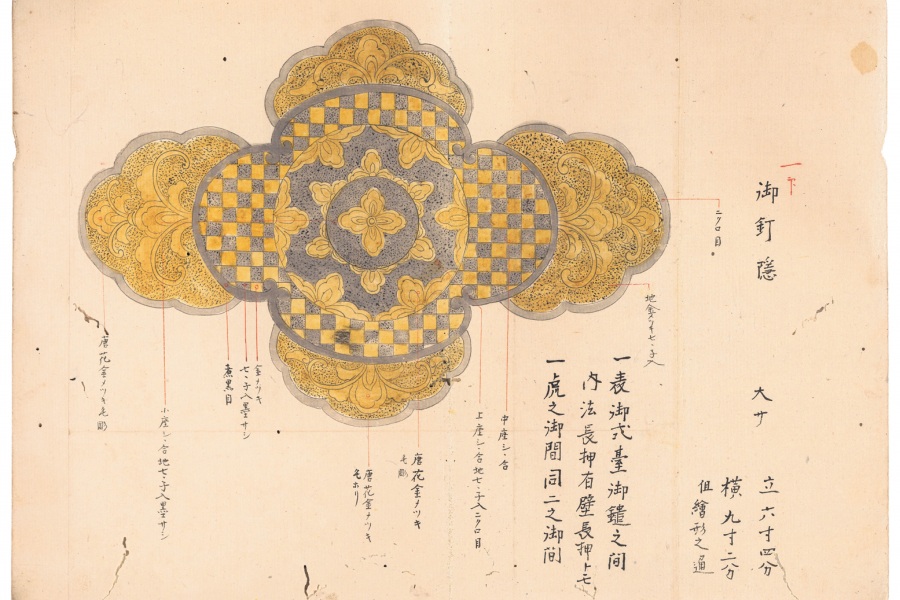 御釘隠
大サ
立六寸四分
横九寸二分
但繪形之通
一表御式臺御鑓之間
内法長押有壁長押トモ
一虎之御間同二之御間
ニクロ目
地金メツキ七々子入
中座シ々合
上座シ々合地七々子入ニクロ目
唐花金メツキ
毛彫
唐花金メツキ
毛ホリ
金メツキ
七々子入墨サシ
煮黒目
小座シ々合地七々子入墨サシ
唐花金メツキ毛彫